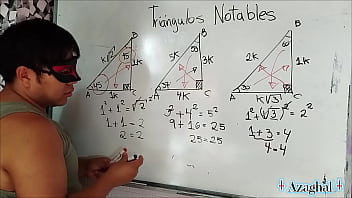 Triángulos Notables
B
45
K√2
1K
45
A
1K
C
1² + 1² = (√2)²
1 + 1 = 2
2 = 2
B
5K
3K
A
4K
C
3² + 4² = 5²
9 + 16 = 25
25 = 25
B
2K
1K
30
A
K√3
C
1² + (√3)² = 2²
1 + 3 = 4
4 = 4
Azaghal